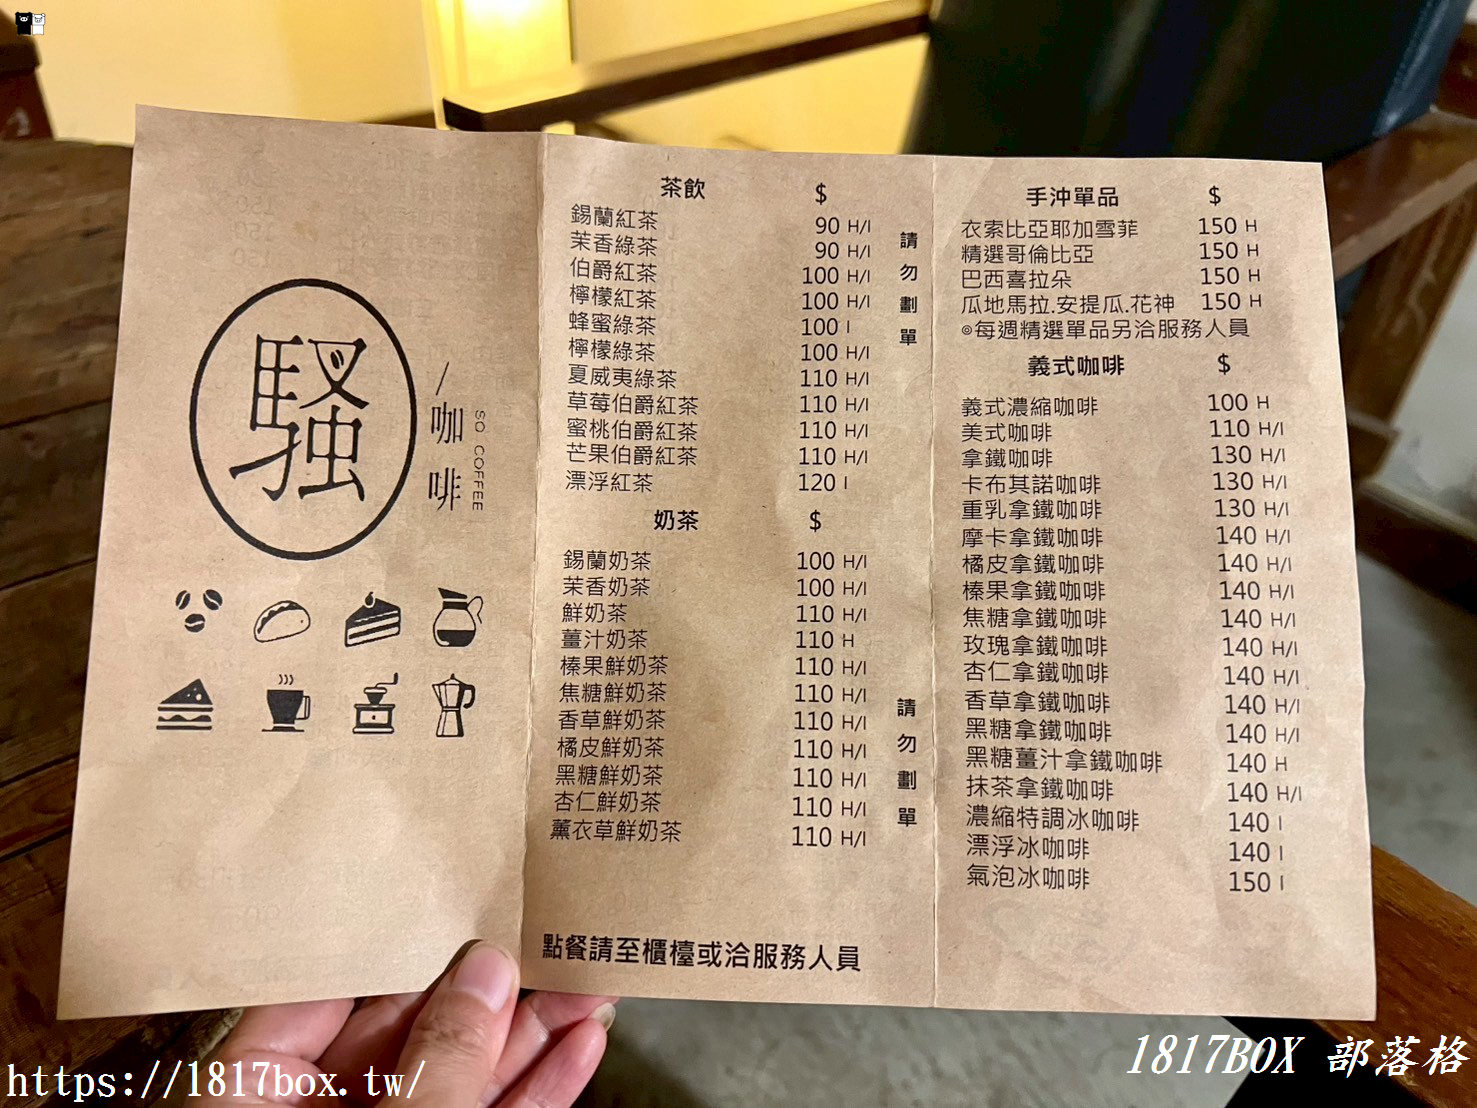 騷
/咖啡
SO COFFEE
茶飲 $
錫蘭紅茶 90 H/I
茉香綠茶 90 H/I
伯爵紅茶 100 H/I
檸檬紅茶 100 H/I
蜂蜜綠茶 100 I
檸檬綠茶 100 H/I
夏威夷綠茶 110 H/I
草莓伯爵紅茶 110 H/I
蜜桃伯爵紅茶 110 H/I
芒果伯爵紅茶 110 H/I
漂浮紅茶 120 I
請勿劃單
奶茶 $
錫蘭奶茶 100 H/I
茉香奶茶 100 H/I
鮮奶茶 110 H/I
薑汁奶茶 110 H
榛果鮮奶茶 110 H/I
焦糖鮮奶茶 110 H/I
香草鮮奶茶 110 H/I
橘皮鮮奶茶 110 H/I
黑糖鮮奶茶 110 H/I
杏仁鮮奶茶 110 H/I
薰衣草鮮奶茶 110 H/I
請勿劃單
點餐請至櫃檯或洽服務人員
手沖單品 $
衣索比亞耶加雪菲 150 H
精選哥倫比亞 150 H
巴西喜拉朵 150 H
瓜地馬拉.安提瓜.花神 150 H
⊙每週精選單品另洽服務人員
義式咖啡 $
義式濃縮咖啡 100 H
美式咖啡 110 H/I
拿鐵咖啡 130 H/I
卡布其諾咖啡 130 H/I
重乳拿鐵咖啡 130 H/I
摩卡拿鐵咖啡 140 H/I
橘皮拿鐵咖啡 140 H/I
榛果拿鐵咖啡 140 H/I
焦糖拿鐵咖啡 140 H/I
玫瑰拿鐵咖啡 140 H/I
杏仁拿鐵咖啡 140 H/I
香草拿鐵咖啡 140 H/I
黑糖拿鐵咖啡 140 H/I
黑糖薑汁拿鐵咖啡 140 H
抹茶拿鐵咖啡 140 H/I
濃縮特調冰咖啡 140 I
漂浮冰咖啡 140 I
氣泡冰咖啡 150 I
https://1817box.tw/
1817BOX 部落格